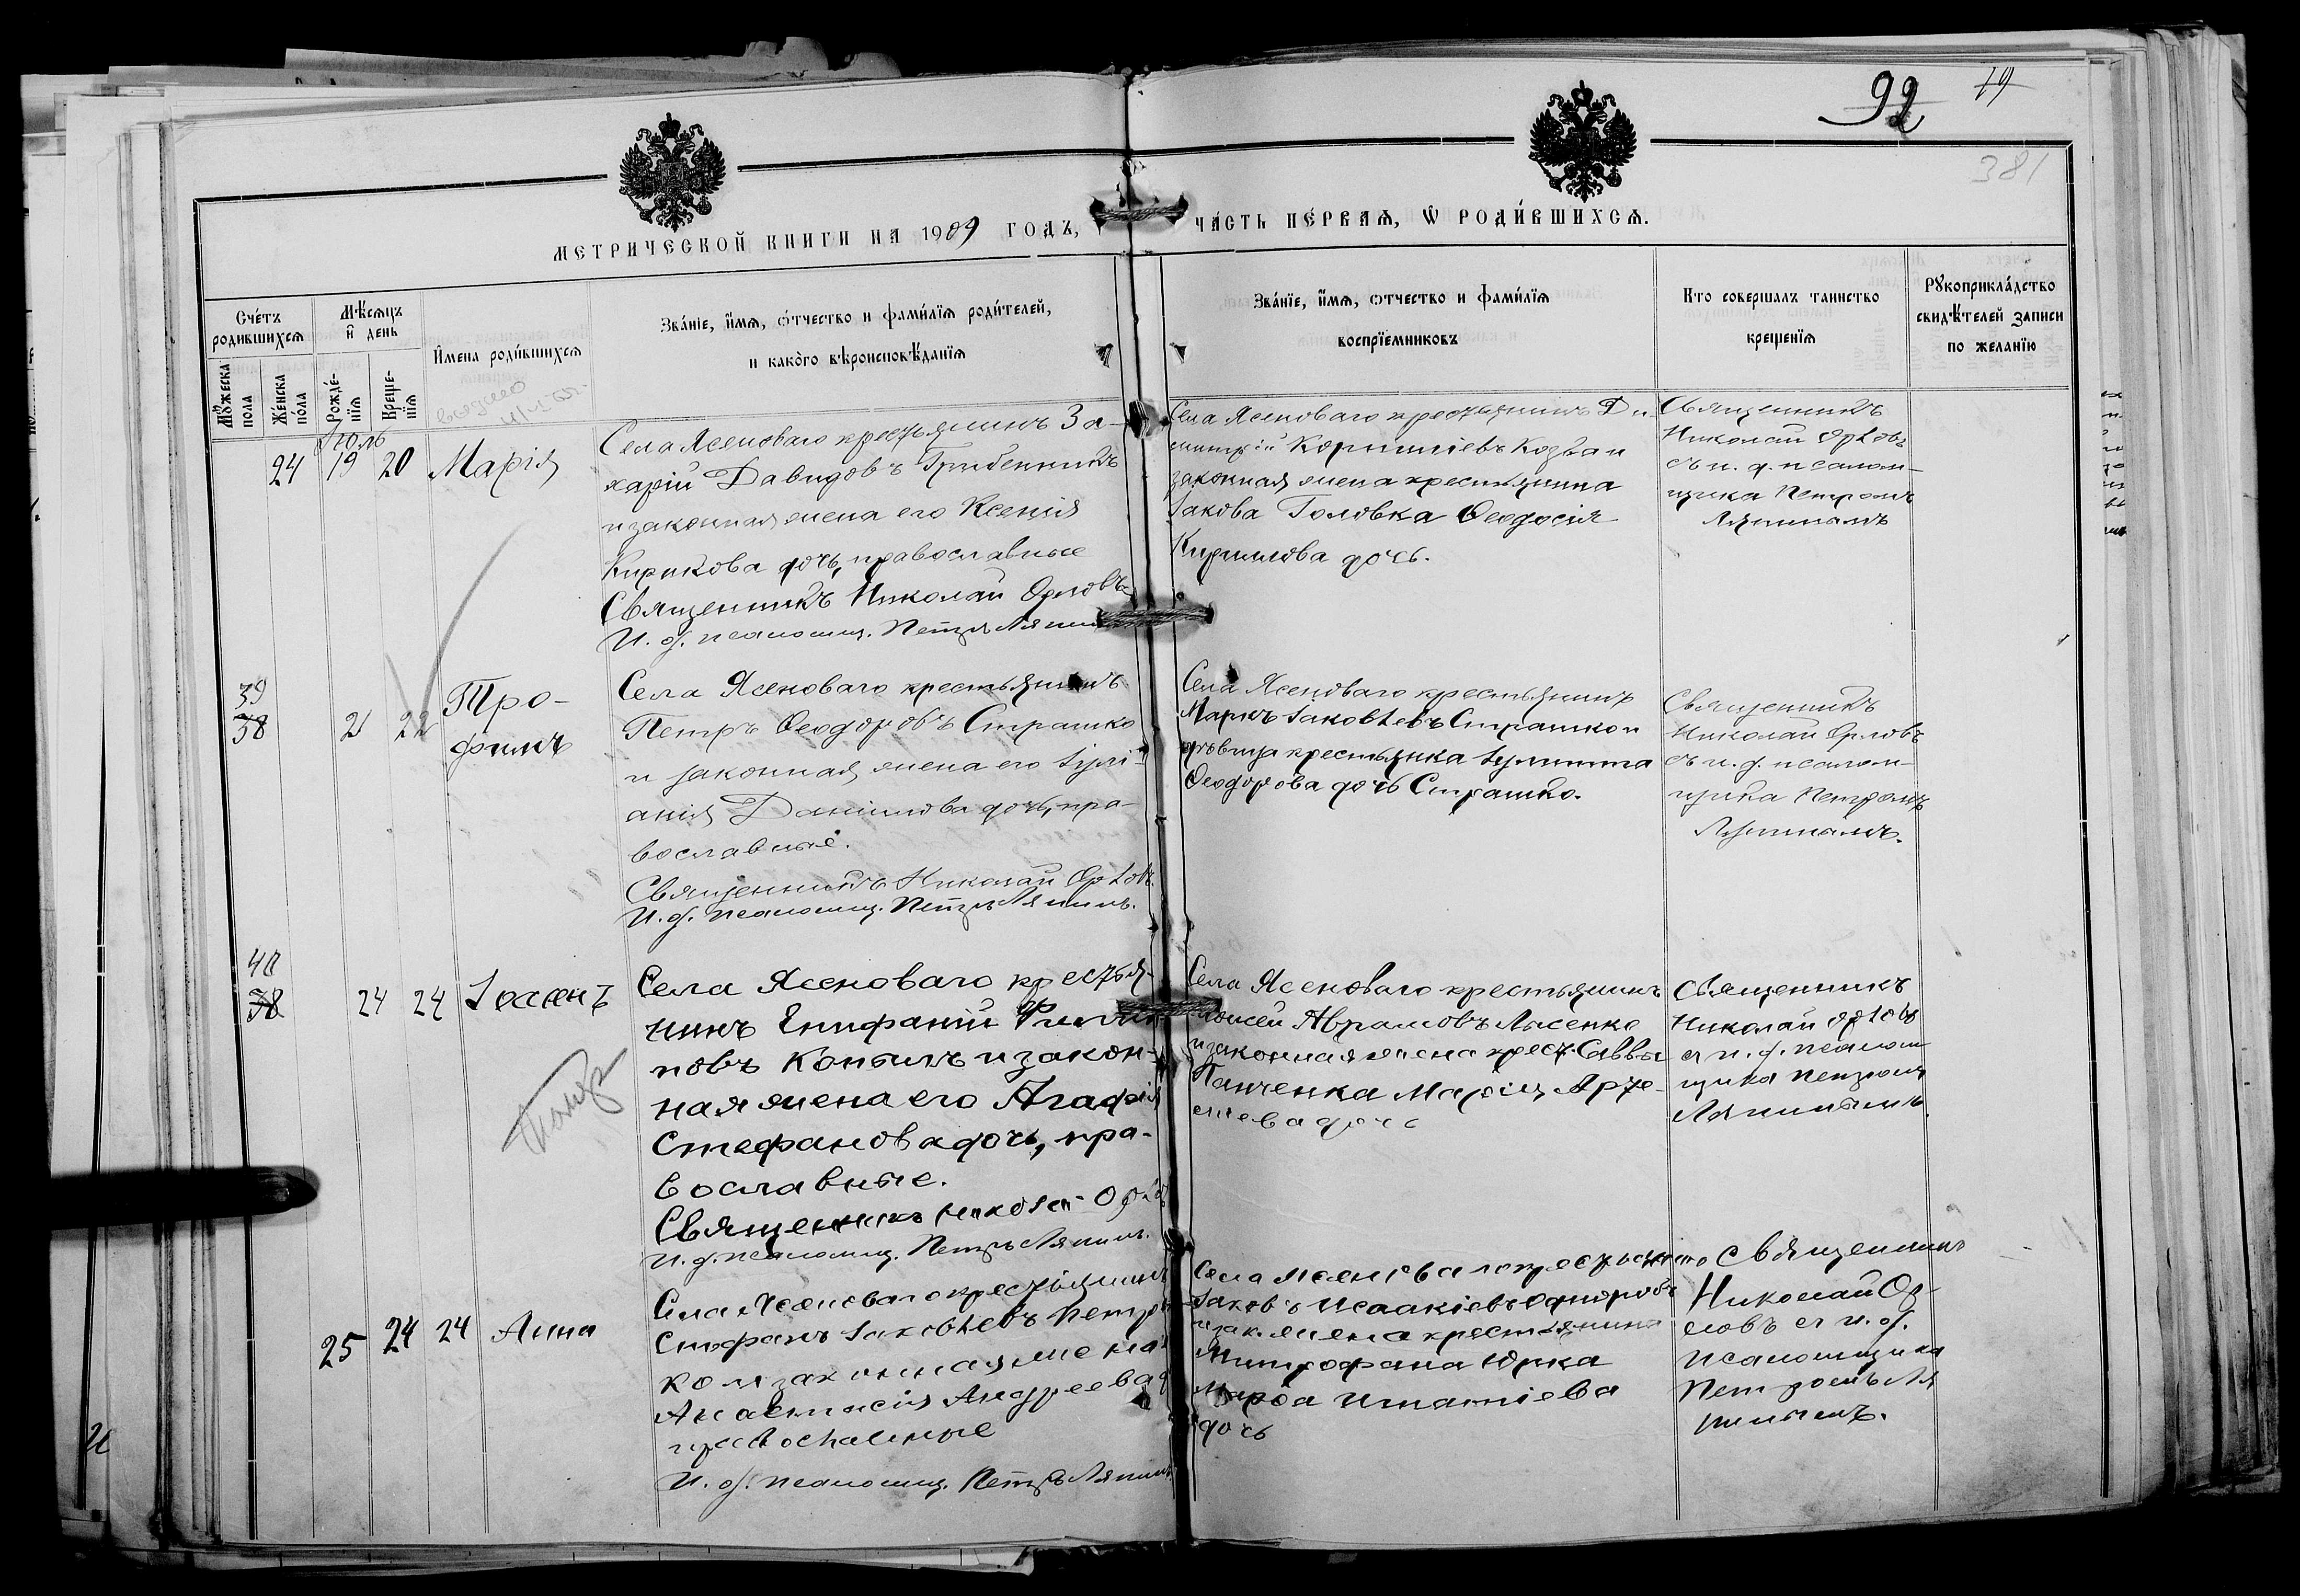 92
19
381
МЕТРИЧЕСКОЙ КНИГИ НА 1909 ГОДЪ,
ЧАСТЬ ПЕРВАЯ, Ѡ РОДИВШИХСЯ.
Счетъ родившихся
Мужеска пола
Женска пола
Мѣсяцъ и день
Рожденія
Крещенія
Имена родившихся
Званіе, имя, отчество и фамилія родителей,
и какого вѣроисповѣданія
Званіе, имя, отчество и фамилія
воспріемниковъ
Кто совершалъ таинство
крещенія
Рукоприкладство
свидѣтелей записи
по желанію
Іюль
24 19 20 Марія
Села Ясеноваго крестьянинъ За-
харій Давидовъ Грибенникъ
и законная жена его Ксенія
Кирикова дочь, православные
Священникъ Николай Орловъ
И. д. псаломщ. Петръ Ляпинъ
Села Ясеноваго крестьянинъ Ди-
митрій Корниліевъ Козва и
законная жена крестьянина
Іакова Головка Ѳеодосія
Кириллова дочь.
Священникъ
Николай Орловъ
съ и. д. псалом-
щика Петромъ
Ляпинымъ
39
38
21 22
Тро-
фимъ
Села Ясеноваго крестьянинъ
Петръ Ѳеодоровъ Страшко
и законная жена его Іулі-
анія Даніилова дочь, пра-
вославные.
Священникъ Николай Орловъ.
И. д. псаломщ. Петръ Ляпинъ.
Села Ясеноваго крестьянинъ
Маркъ Іаковлевъ Страшко и
дѣвица крестьянка Іулитта
Ѳеодорова дочь Страшко.
Священникъ
Николай Орловъ
съ и. д. псалом-
щика Петромъ
Ляпинымъ.
40
24 24 Іоаннъ
Села Ясеноваго крестья-
нинъ Епифаній Филип-
повъ Копылъ и закон-
ная жена его Агафія
Стефанова дочь, пра-
вославные.
Священникъ Николай Орловъ
И. д. псаломщ. Петръ Ляпинъ.
Села Ясеноваго крестьянинъ
Моисей Аврамовъ Лысенко
и законная жена крест. Саввы
Панченка Марія Арте-
міева дочь
Священникъ
Николай Орловъ
съ и. д. псалом
щика Петромъ
Ляпинымъ.
25 24 24 Анна
Села Ясеноваго крестьянинъ
Стефанъ Іаковлевъ
Анастасія Андреева
православные
И. д. псаломщ. Петръ Ляпинъ
Села Ясеноваго крестьянинъ
Іаковъ Исаакіевъ
и зак. жена крестьянина
Митрофана Юрка
Марѳа Игнатіева
дочь
Священникъ
Николай Ор-
ловъ съ и. д.
псаломщика
Петромъ Ля
пинымъ.